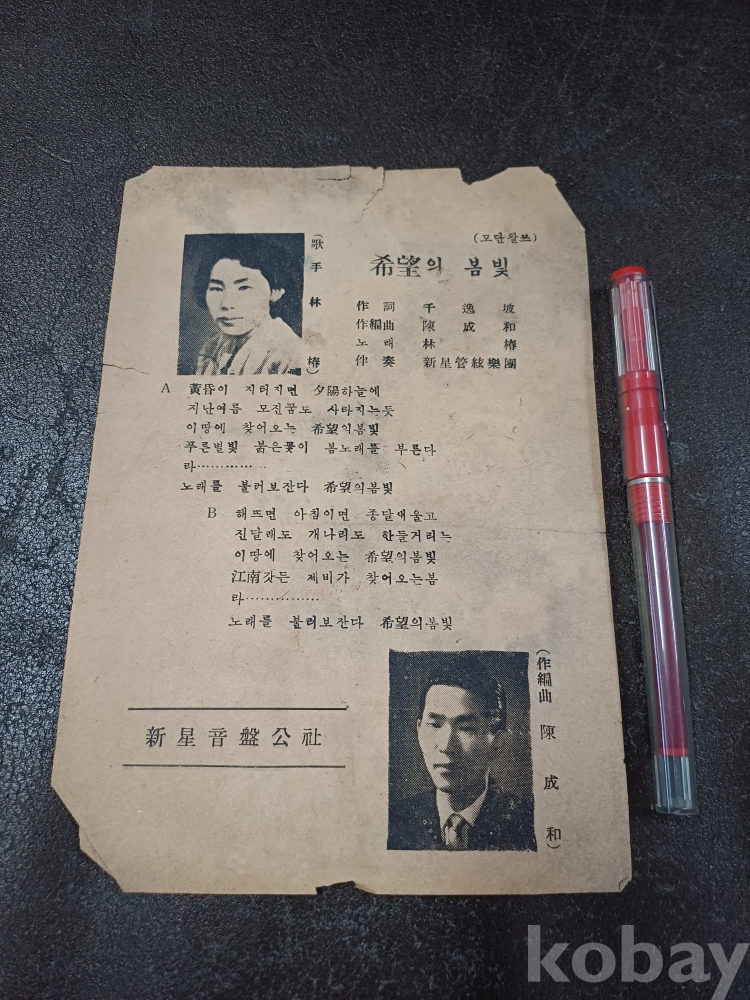 (모단왈쯔)
希望의 봄빛
(歌手 林 椿)
作詞 千逸坡
作編曲 陳成和
노래 林椿
伴奏 新星管絃樂團
A 黃昏이 지터지면 夕陽하늘에
지난여름 모진꿈도 사라지는듯
이땅에 찾어오는 希望의봄빛
푸른별빛 붉은꽃이 봄노래를 부른다
라…………
노래를 불러보잔다 希望의봄빛
B 해뜨면 아침이면 종달새울고
진달래도 개나리도 한들거리는
이땅에 찾어오는 希望의봄빛
江南갓든 제비가 찾어오는봄
라……………
노래를 불러보잔다 希望의봄빛
(作編曲 陳成和)
新星音盤公社
kobay